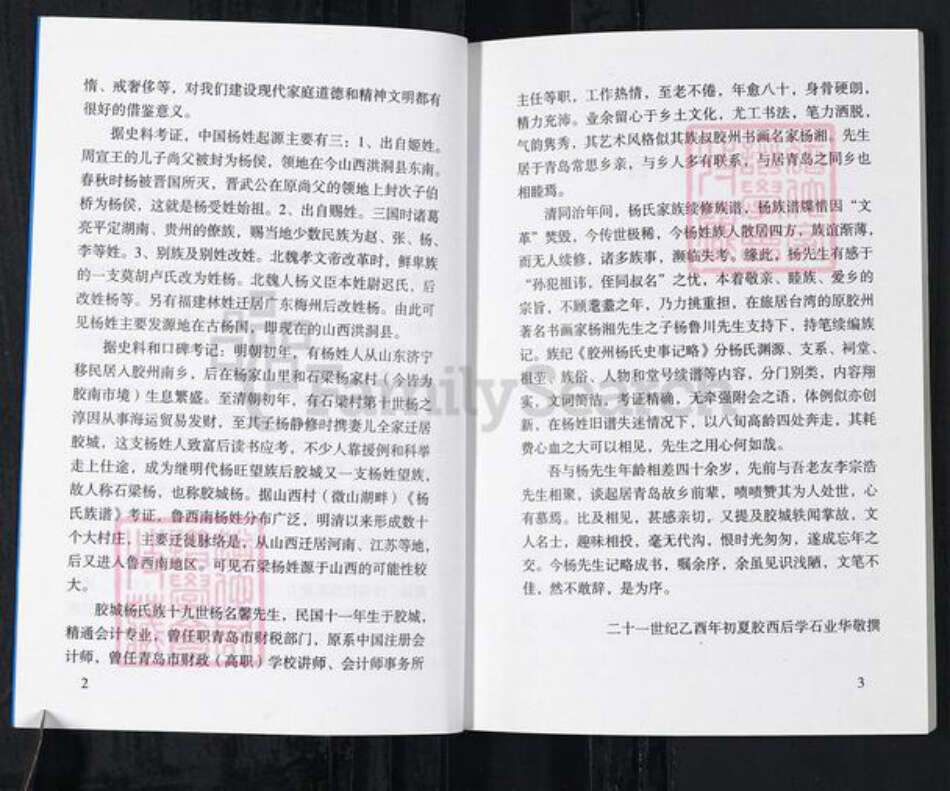 惰、戒奢侈等，对我们建设现代家庭道德和精神文明都有
很好的借鉴意义。
据史料考证，中国杨姓起源主要有三：1、出自姬姓。
周宣王的儿子尚父被封为杨侯，领地在今山西洪洞县东南。
春秋时杨被晋国所灭，晋武公在原尚父的领地上封次子伯
桥为杨侯，这就是杨受姓始祖。2、出自赐姓。三国时诸葛
亮平定湖南、贵州的僚族，赐当地少数民族为赵、张、杨、
李等姓。3、别族及别姓改姓。北魏孝文帝改革时，鲜卑族
的一支莫胡卢氏改为姓杨。北魏人杨义臣本姓尉迟氏，后
改姓杨等。另有福建林姓迁居广东梅州后改姓杨。由此可
见杨姓主要发源地在古杨国，即现在的山西洪洞县。
据史料和口碑考记：明朝初年，有杨姓人从山东济宁
移民居入胶州南乡，后在杨家山里和石梁杨家村（今皆为
胶南市境）生息繁盛。至清朝初年，有石梁村第十世杨之
淳因从事海运贸易发财，至其子杨静修时携妻儿全家迁居
胶城，这支杨姓人致富后读书应考，不少人靠援例和科举
走上仕途，成为继明代杨旺望族后胶城又一支杨姓望族，
故人称石梁杨，也称胶城杨。据山西村（微山湖畔）《杨
氏族谱》考证，鲁西南杨姓分布广泛，明清以来形成数十
个大村庄，主要迁徙脉络是，从山西迁居河南、江苏等地，
后又进人鲁西南地区。可见石梁杨姓源于山西的可能性较
大。
胶城杨氏族十九世杨名馨先生，民国十一年生于胶城，
精通会计专业，曾任职青岛市财税部门，原系中国注册会
计师，曾任青岛市财政（高职）学校讲师、会计师事务所
2
主任等职，工作热情，至老不倦，年愈八十，身骨硬朗，
精力充沛。业余留心于乡土文化，尤工书法，笔力洒脱，
气韵隽秀，其艺术风格似其族叔胶州书画名家杨湘。先生
居于青岛常思乡亲，与乡人多有联系，与居青岛之同乡也
相睦焉。
清同治年间，杨氏家族续修族谱，杨族谱牒惜因“文
革”焚毁，今传世极稀，今杨姓族人散居四方，族谊渐薄，
而无人续修，诸多族事，濒临失考。缘此，杨先生有感于
“孙犯祖讳，侄同叔名”之忧，本着敬亲、睦族、爱乡的
宗旨，不顾耄耋之年，乃力挑重担，在旅居台湾的原胶州
著名书画家杨湘先生之子杨鲁川先生支持下，持笔续编族
记。族纪《胶州杨氏史事记略》分杨氏渊源、支系、祠堂、
祖茔、族俗、人物和堂号续谱等内容，分门别类，内容翔
实，文词简洁，考证精确，无牵强附会之语，体例似亦创
新，在杨姓旧谱失迷情况下，以八旬高龄四处奔走，其耗
费心血之大可以相见，先生之用心何如哉。
吾与杨先生年龄相差四十余岁，先前与吾老友李宗浩
先生相聚，谈起居青岛故乡前辈，啧啧赞其为人处世，心
有慕焉。比及相见，甚感亲切，又提及胶城轶闻掌故，文
人名士，趣味相投，毫无代沟，恨时光匆匆，遂成忘年之
交。今杨先生记略成书，嘱余序，余虽见识浅陋，文笔不
佳，然不敢辞，是为序。
二十一世纪乙酉年初夏胶西后学石业华敬撰
3
FamilySearch